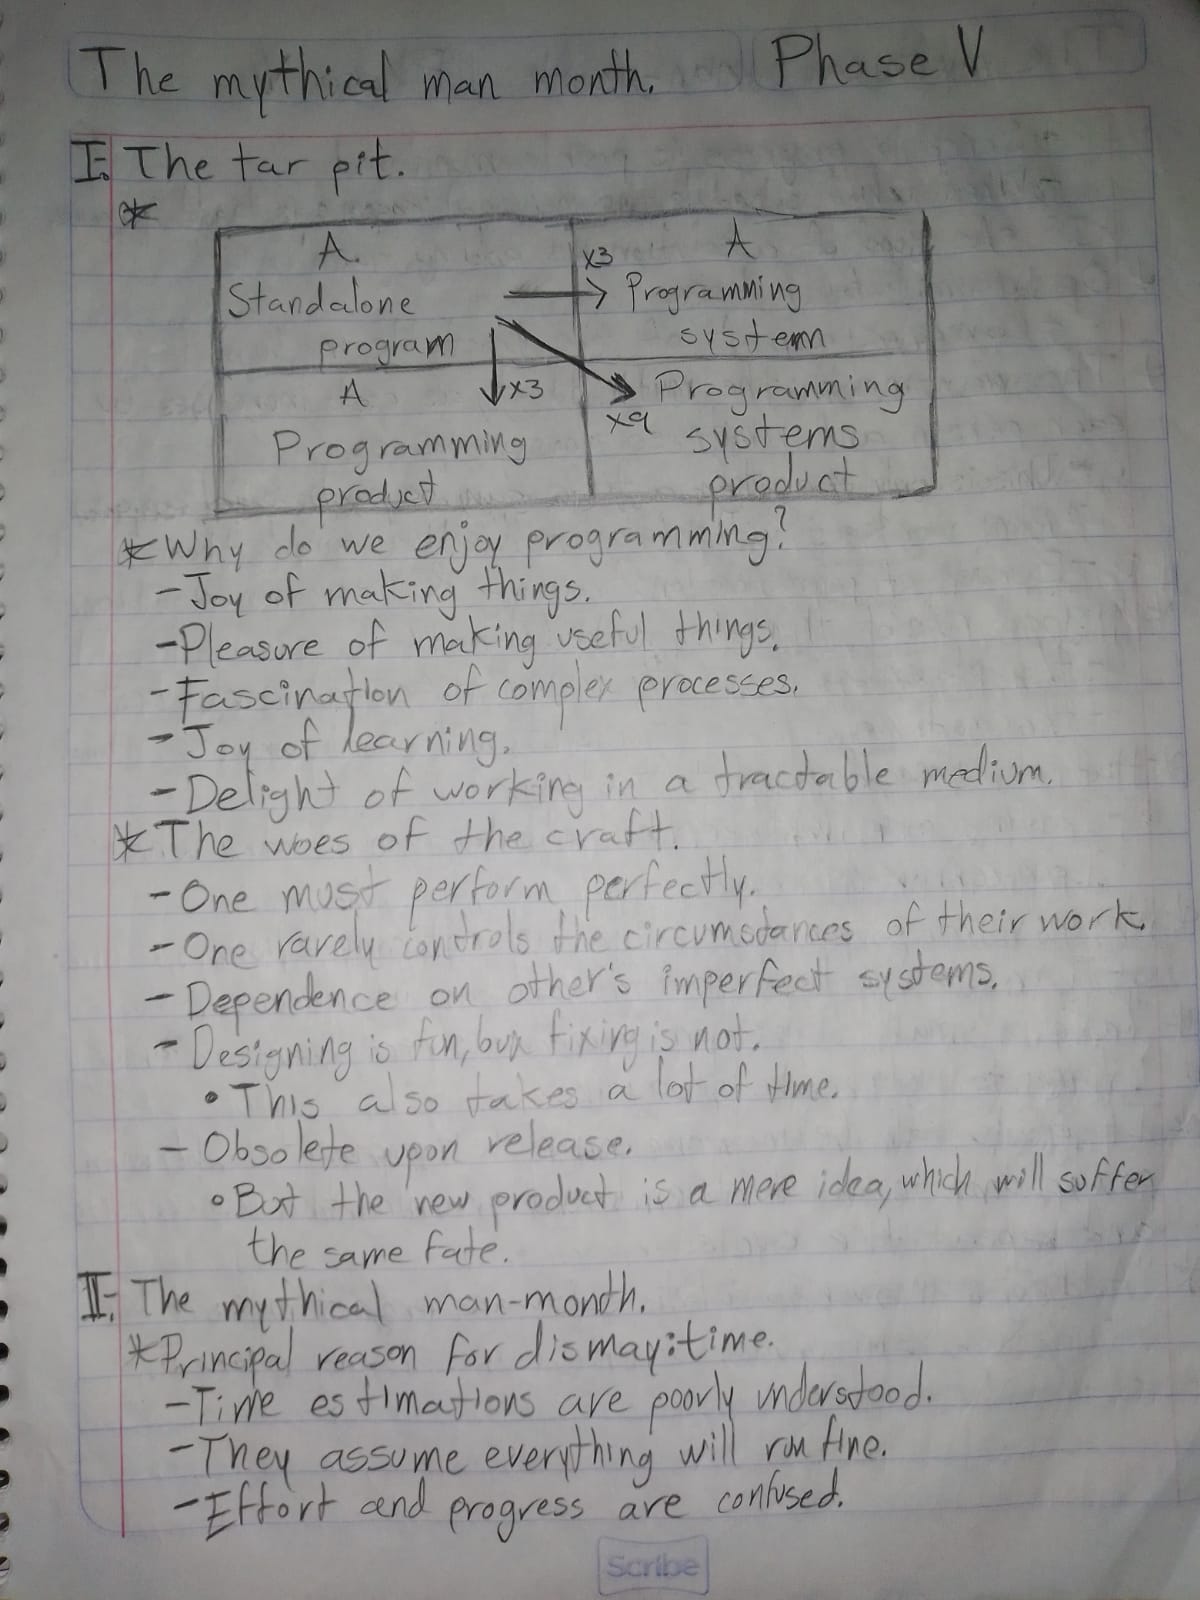 The mythical man month. Phase V
I. The tar pit.
*
A. Standalone program
x3
A Programming system
A Programming product
x3
x9
Programming systems product
*Why do we enjoy programming?
-Joy of making things.
-Pleasure of making useful things.
-Fascination of complex processes.
-Joy of learning.
-Delight of working in a tractable medium.
*The woes of the craft.
-One must perform perfectly.
-One rarely controls the circumstances of their work.
-Dependence on other's imperfect systems.
-Designing is fun, bug fixing is not.
•This also takes a lot of time.
-Obsolete upon release.
•But the new product is a mere idea, which will suffer
the same fate.
II. The mythical man-month.
*Principal reason for dismay: time.
-Time estimations are poorly understood.
-They assume everything will run fine.
-Effort and progress are confused.
Scribe